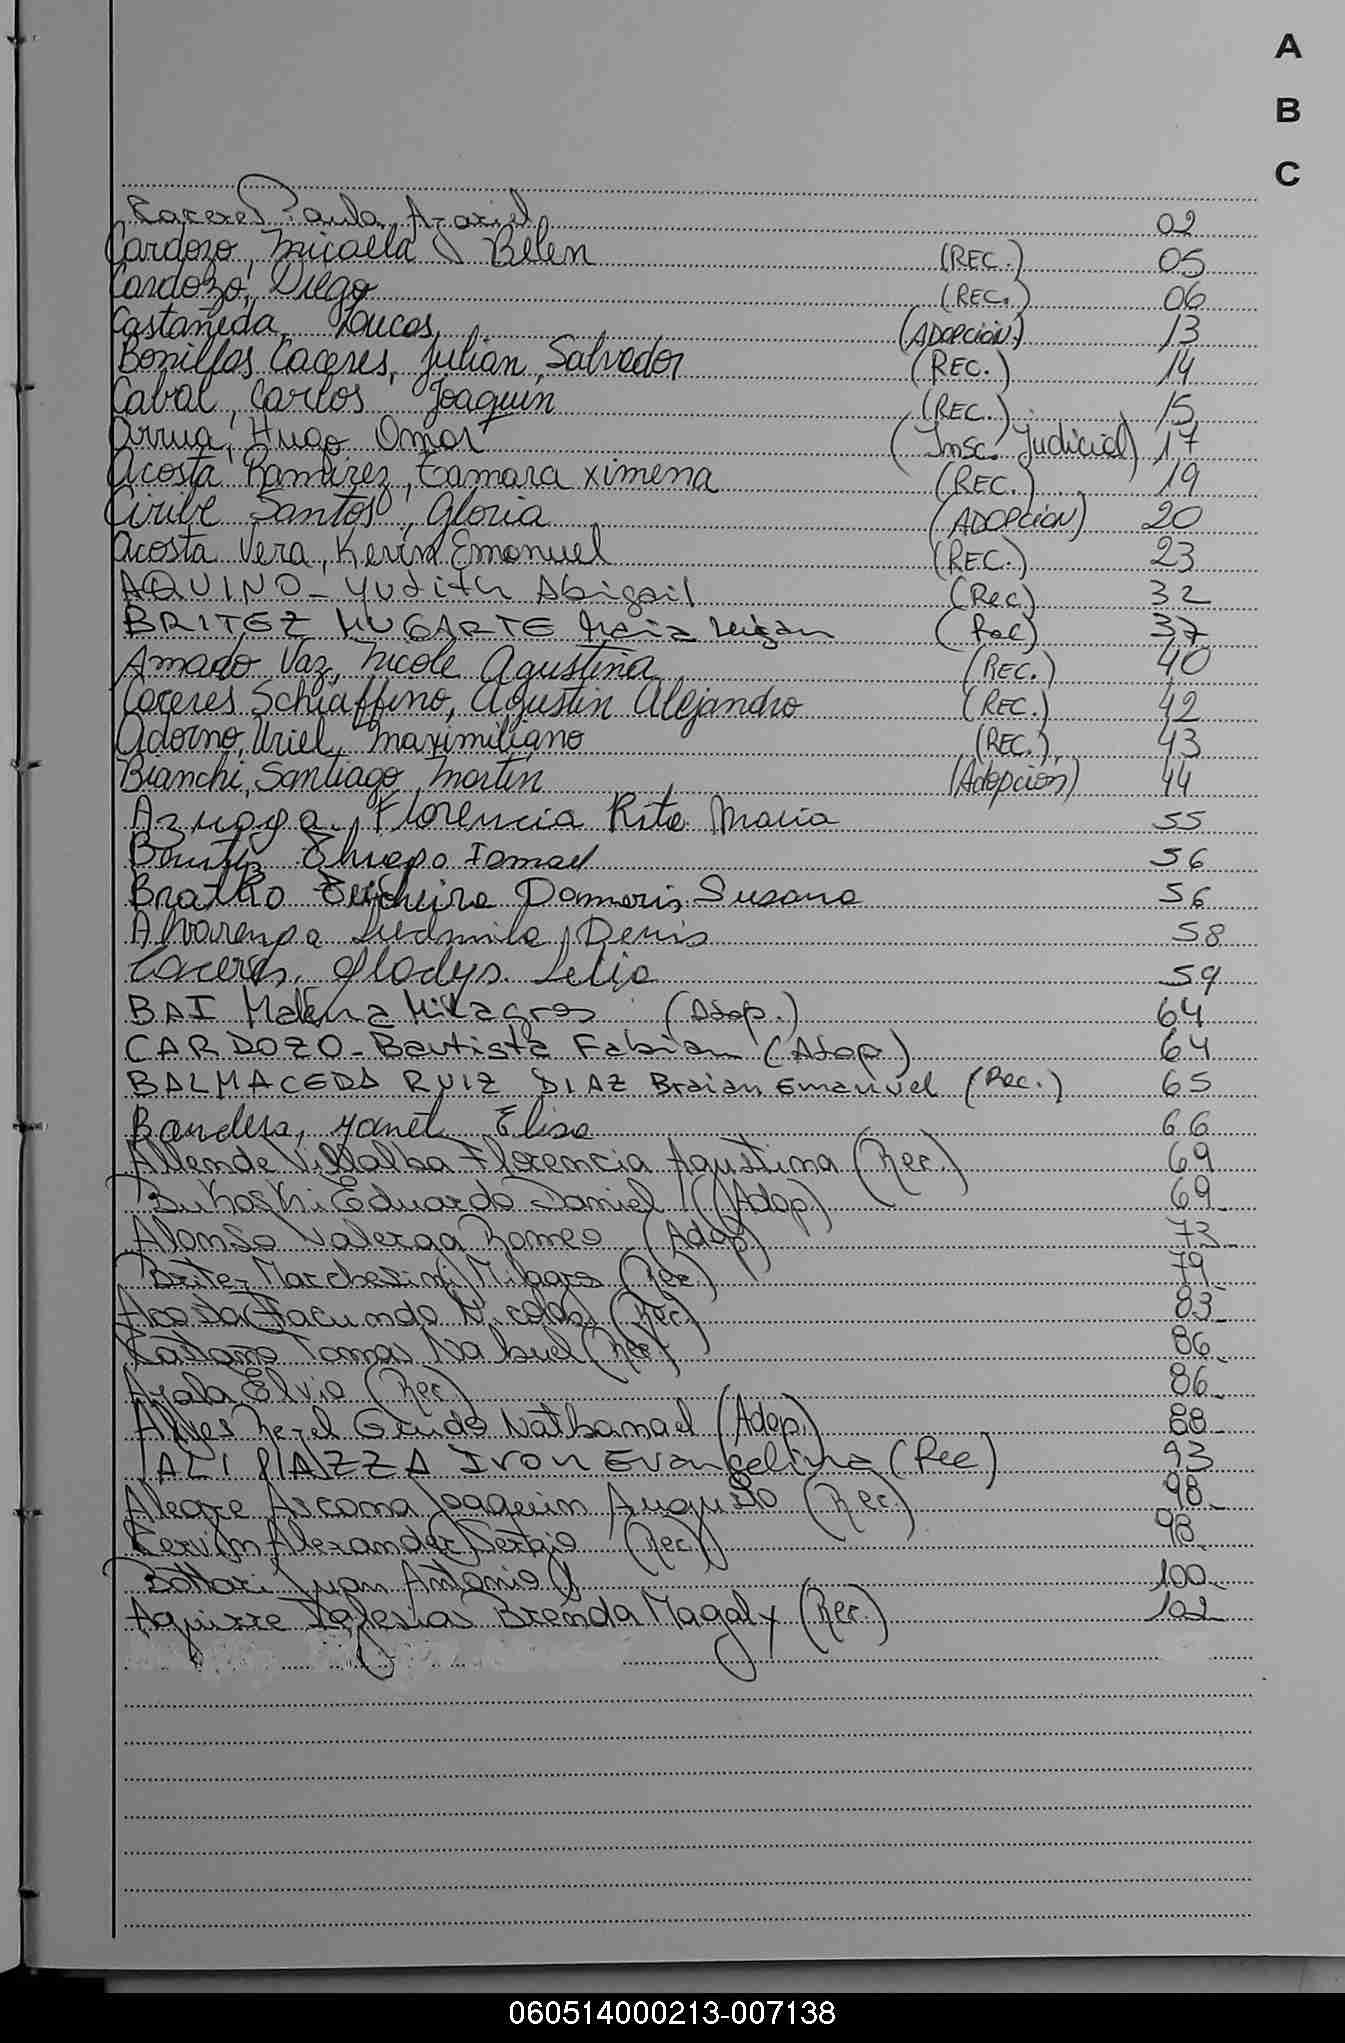 A
B
C
Caceres Paula Araxiel 02
Cardozo, Micaela Belen (REC.) 05
Cardozo, Diego (REC.) 06
Castañeda, Lucas (ADOPCION) 13
Bonillas Caceres, Julian, Salvador (REC.) 14
Cabal, Carlos Joaquin (REC.) 15
Arrua, Hugo Omar (Insc. Judicial) 17
Acosta Ramirez, Tamara Ximena (REC.) 19
Ciribe Santos, Gloria (ADOPCION) 20
Acosta Vera, Kevin Emanuel (REC.) 23
AQUINO - Yudith Abigail (Rec) 32
BRITEZ MUGARTE (Rec) 37
Amado Vaz, Nicole Agustina (REC.) 40
Caceres Schiaffino, Agustin Alejandro (REC.) 42
Adorno, Uriel, Maximiliano (REC.) 43
Bianchi, Santiago Martin (Adopcion) 44
Aznaga, Florencia Rita Maria 55
Benitez Thiago Ismael 56
Bratko Teixheira Damaris Susana 56
Alvarenga Ludmila Denis 58
Caceres, Gladys Lelia 59
BAI Malena Milagros (Adop.) 64
CARDOZO - Bautista Fabian (Adop) 64
BALMACEDA RUIZ DIAZ Braian Emanuel (Rec.) 65
Bandera, Yanel Elisa 66
Allende Villalba Florencia Agustina (Rec.) 69
Bukoski Eduardo Daniel (Adop) 69
Alonso Valerga Romeo (Adop) 73
Brite Marchesini Milagro (Rec) 79
Acosta Facundo Nicolas (Rec) 83
Castano Tomas Nahuel (Rec) 86
Ayala Elvio (Rec) 86
Alves Guido Nathanael (Adop.) 88
PIAZZA Ivon Evangelina (Rec) 93
Alegre Ascona Joaquin Augusto (Rec.) 98
Alexander Sergio (Rec) 98
Bottari Juan Antonio 100
Aguirre Iglesias Brenda Magaly (Rec.) 102
060514000213-007138